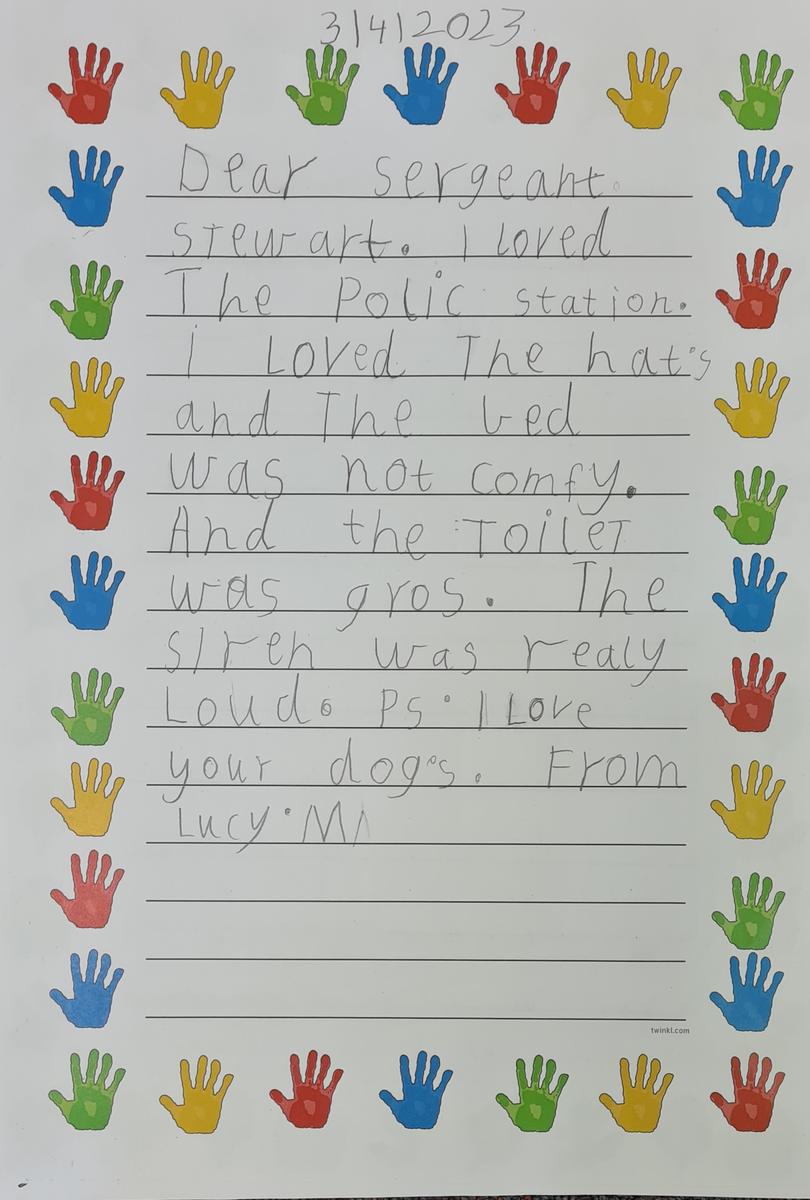 3/4/2023
Dear sergeant.
stewart. I Loved
The Polic station.
i Loved The hat's
and The bed
was not comfy.
And the Toilet
was gros. The
siren was realy
Loud. Ps. I Love
your dog's. From
Lucy. M
twinkl.com